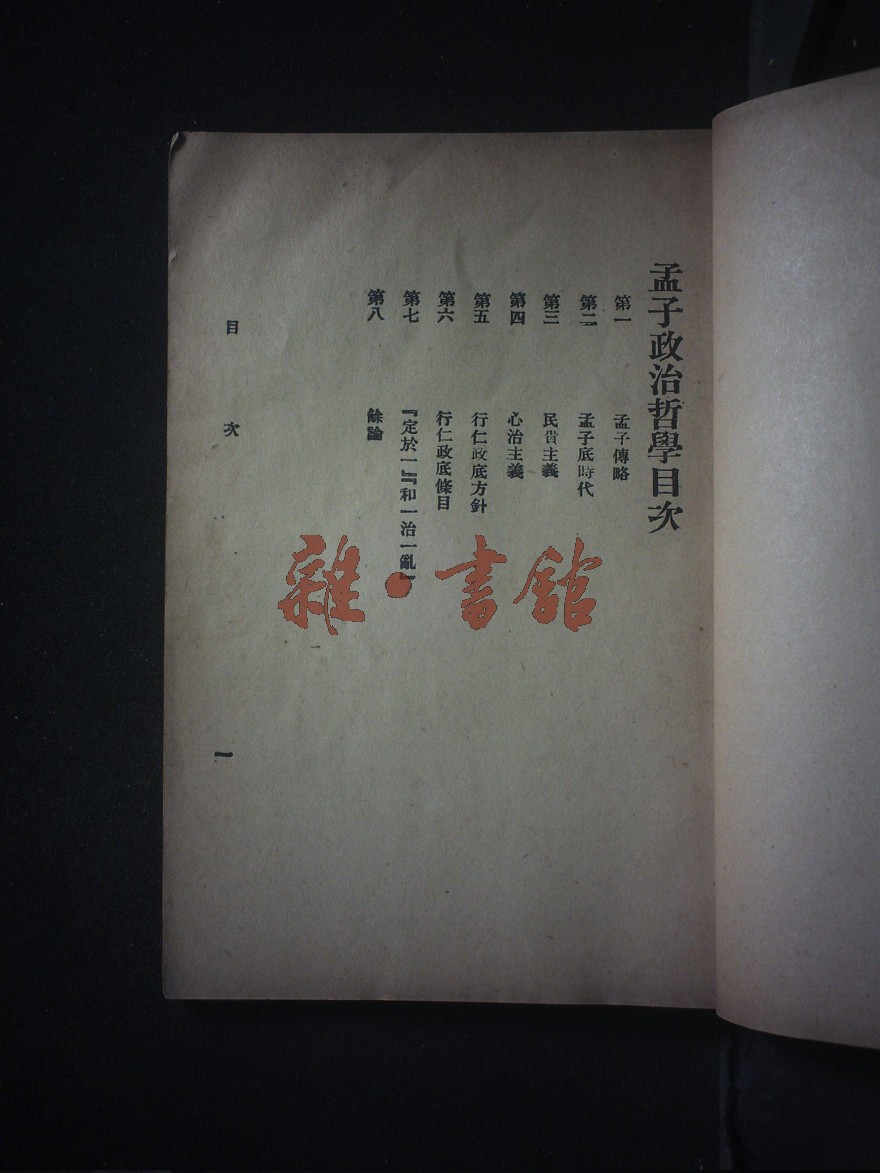 孟子政治哲學目次
第一 孟子傳略
第二 孟子底時代
第三 民貴主義
第四 心治主義
第五 行仁政底方針
第六 行仁政底條目
第七 『定於一』『和一治一亂』
第八 餘論
目次
一
雜·書館